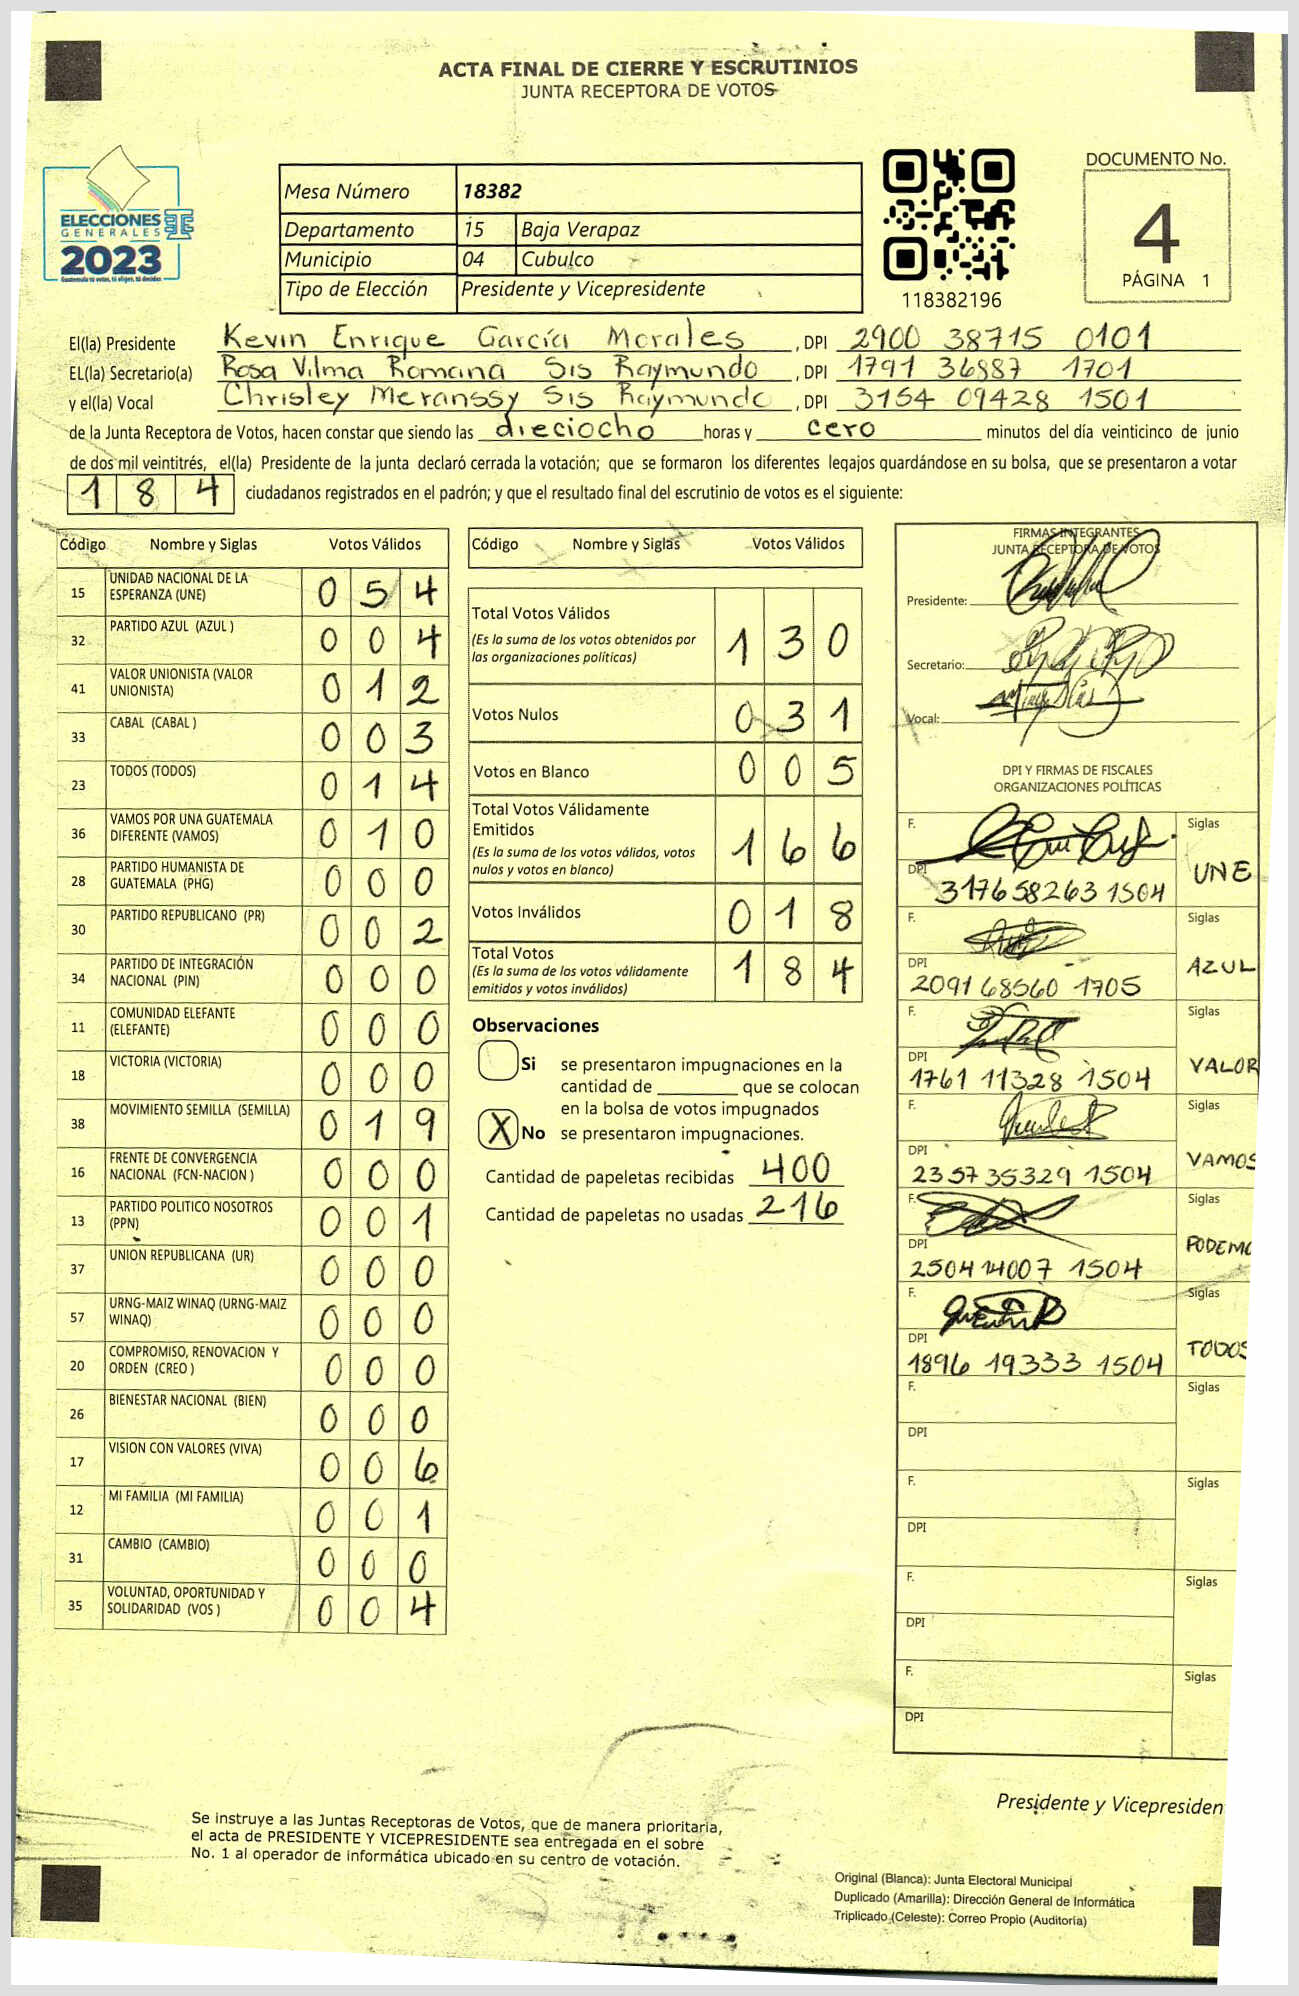 ACTA FINAL DE CIERRE Y ESCRUTINIOS
JUNTA RECEPTORA DE VOTOS
ELECCIONES
GENERALES
2023
Guatemala tú votas, tú eliges, tú decides
Mesa Número 18382
Departamento 15 Baja Verapaz
Municipio 04 Cubulco
Tipo de Elección Presidente y Vicepresidente
118382196
DOCUMENTO No.
4
PÁGINA 1
El(la) Presidente Kevin Enrique García Morales, DPI 2900 38715 0101
EL(la) Secretario(a) Rosa Vilma Romana Sis Raymundo, DPI 1791 36887 1701
y el(la) Vocal Chrisley Meranssy Sis Raymundo, DPI 3154 09428 1501
de la Junta Receptora de Votos, hacen constar que siendo las dieciocho horas y cero minutos del día veinticinco de junio
de dos mil veintitrés, el(la) Presidente de la junta declaró cerrada la votación; que se formaron los diferentes legajos quardándose en su bolsa, que se presentaron a votar
184 ciudadanos registrados en el padrón; y que el resultado final del escrutinio de votos es el siguiente:
Código Nombre y Siglas Votos Válidos
15 UNIDAD NACIONAL DE LA ESPERANZA (UNE) 054
32 PARTIDO AZUL (AZUL ) 004
41 VALOR UNIONISTA (VALOR UNIONISTA) 012
33 CABAL (CABAL ) 003
23 TODOS (TODOS) 014
36 VAMOS POR UNA GUATEMALA DIFERENTE (VAMOS) 010
28 PARTIDO HUMANISTA DE GUATEMALA (PHG) 000
30 PARTIDO REPUBLICANO (PR) 002
34 PARTIDO DE INTEGRACIÓN NACIONAL (PIN) 000
11 COMUNIDAD ELEFANTE (ELEFANTE) 000
18 VICTORIA (VICTORIA) 000
38 MOVIMIENTO SEMILLA (SEMILLA) 019
16 FRENTE DE CONVERGENCIA NACIONAL (FCN-NACION ) 000
13 PARTIDO POLITICO NOSOTROS (PPN) 001
37 UNION REPUBLICANA (UR) 000
57 URNG-MAIZ WINAQ (URNG-MAIZ WINAQ) 000
20 COMPROMISO, RENOVACION Y ORDEN (CREO ) 000
26 BIENESTAR NACIONAL (BIEN) 000
17 VISION CON VALORES (VIVA) 006
12 MI FAMILIA (MI FAMILIA) 001
31 CAMBIO (CAMBIO) 000
35 VOLUNTAD, OPORTUNIDAD Y SOLIDARIDAD (VOS ) 004
Código Nombre y Siglas Votos Válidos
Total Votos Válidos 130
(Es la suma de los votos obtenidos por
las organizaciones políticas)
Votos Nulos 031
Votos en Blanco 005
Total Votos Válidamente
Emitidos 166
(Es la suma de los votos válidos, votos
nulos y votos en blanco)
Votos Inválidos 018
Total Votos 184
(Es la suma de los votos válidamente
emitidos y votos inválidos)
Observaciones
Si se presentaron impugnaciones en la
cantidad de ________ que se colocan
en la bolsa de votos impugnados
X No se presentaron impugnaciones.
Cantidad de papeletas recibidas 400
Cantidad de papeletas no usadas 216
FIRMAS INTEGRANTES
JUNTA RECEPTORA DE VOTOS
Presidente:
Secretario:
Vocal:
DPI Y FIRMAS DE FISCALES
ORGANIZACIONES POLÍTICAS
F. Siglas
DPI 317658263 1504 UNE
F. Siglas
DPI 2091 68560 1705 AZUL
F. Siglas
DPI 1761 11328 1504 VALOR
F. Siglas
DPI 2357 35329 1504 VAMOS
F. Siglas
DPI 2504 14007 1504 PODEMO
F. Siglas
DPI 1896 19333 1504 TODOS
F. Siglas
DPI
F. Siglas
DPI
F. Siglas
DPI
F. Siglas
DPI
Presidente y Vicepresiden
Se instruye a las Juntas Receptoras de Votos, que de manera prioritaria,
el acta de PRESIDENTE Y VICEPRESIDENTE sea entregada en el sobre
No. 1 al operador de informática ubicado en su centro de votación.
Original (Blanca): Junta Electoral Municipal
Duplicado (Amarilla): Dirección General de Informática
Triplicado (Celeste): Correo Propio (Auditoría)